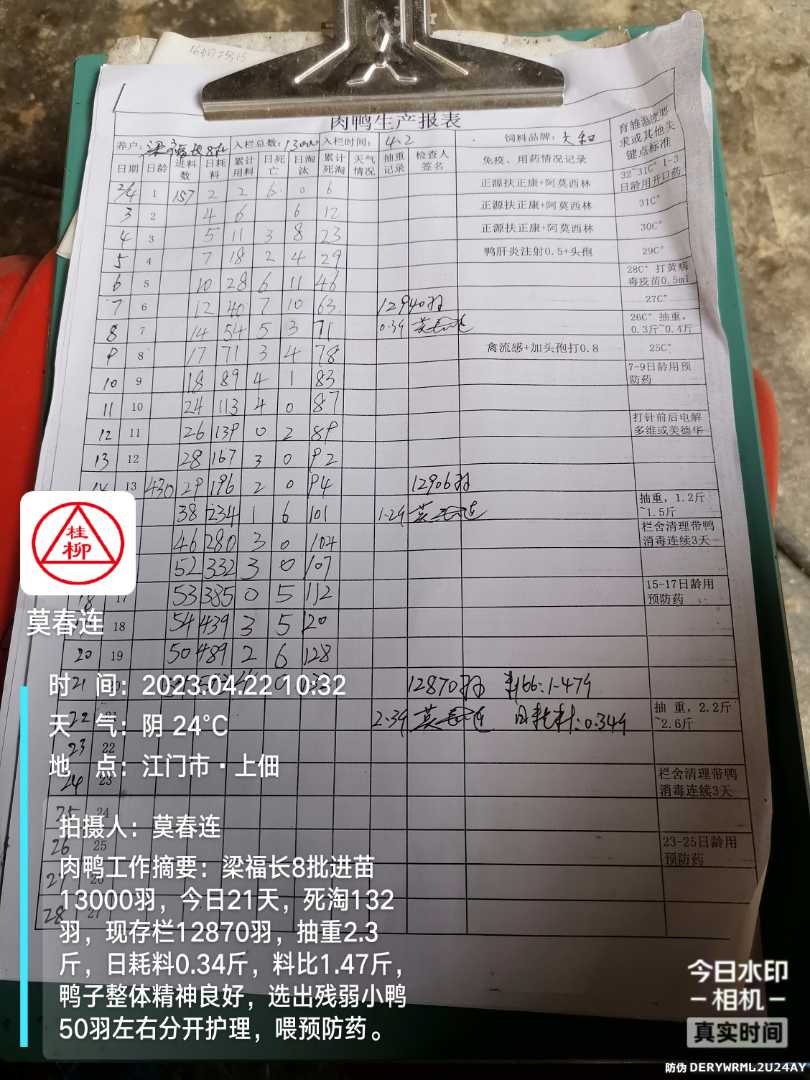 肉鸭生产报表
养户: 梁福长8批 入栏总数: 13000 入栏时间: 4.2 饲料品牌: 大和 育雏温度要求或其他关键点标准
日期 日龄 进料数 日耗料 累计用料 日死亡 日淘汰 累计死淘 天气情况 抽重记录 检查人签名 免疫、用药情况记录
2/4 1 157 2 2 6 0 6 正源扶正康+阿莫西林 32~31C° 1-3日龄用开口药
3 2 4 6 6 12 正源扶正康+阿莫西林 31C°
4 3 5 11 3 8 23 正源扶正康+阿莫西林 30C°
5 4 7 18 2 4 29 鸭肝炎注射0.5+头孢 29C°
6 5 10 28 6 11 46 28C° 打黄病毒疫苗0.5ml
7 6 12 40 7 10 63 12940羽 27C°
8 7 14 54 5 3 71 0.39 莫春连 26C° 抽重，0.3斤~0.4斤
9 8 17 71 3 4 78 禽流感+加头孢打0.8 25C°
10 9 18 89 4 1 83 7-9日龄用预防药
11 10 24 113 4 0 87
12 11 26 139 0 2 89 打针前后电解多维或美德华
13 12 28 167 3 0 92
14 13 430 29 196 2 0 94 12906羽
38 234 1 6 101 1.29 莫春连 抽重，1.2斤~1.5斤
46 280 3 0 104 栏舍清理带鸭消毒连续3天
52 332 3 0 107
18 17 53 385 0 5 112 15-17日龄用预防药
18 54 439 3 5 120
20 19 50 489 2 6 128
21 12870羽 料比:1.479
22 2.39 莫春连 日耗料:0.349 抽重，2.2斤~2.6斤
23 22
24 23 栏舍清理带鸭消毒连续3天
25 24
26 25 23-25日龄用预防药
27 26
28 27
桂柳
莫春连
时 间：2023.04.22 10:32
天 气：阴 24°C
地 点：江门市·上佃
拍摄人：莫春连
肉鸭工作摘要：梁福长8批进苗
13000羽，今日21天，死淘132
羽，现存栏12870羽，抽重2.3
斤，日耗料0.34斤，料比1.47斤，
鸭子整体精神良好，选出残弱小鸭
50羽左右分开护理，喂预防药。
今日水印
相机
真实时间
防伪 DERYWRML2U24AY